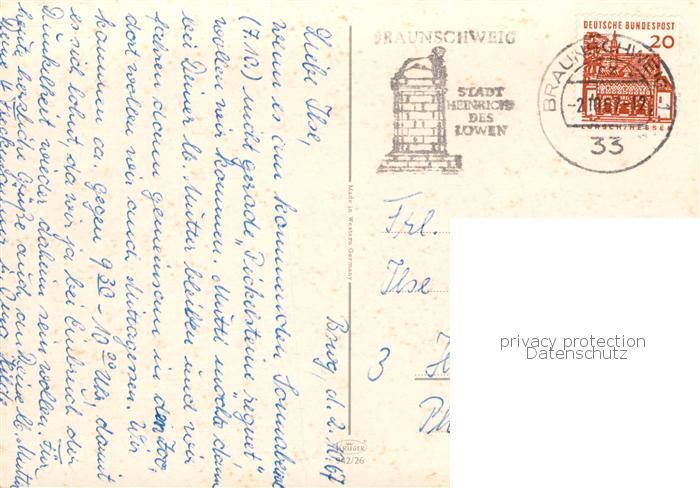 Bswg, d. 2.10.67
Liebe Ilse,
wenn es am kommenden Sonnabend
(7.10.) nicht gerade „Pickelsteine regnet"
wollen wir kommen. Mutti möchte dann
bei Deiner lb. Mutter bleiben und wir
fahren dann gemeinsam in den Zoo,
dort wollen wir auch Mittagessen. Wir
kommen ca. gegen 9 30 - 10 00 Uhr, damit
es sich lohnt, da wir ja bei Einbruch der
Dunkelheit wieder daheim sein wollen. Für
heute herzliche Grüße auch an Deine lb. Mutter
BRAUNSCHWEIG
STADT
HEINRICHS
DES
LÖWEN
BRAUNSCHWEIG 1
-2.10.67-12
33
DEUTSCHE BUNDESPOST
20
LORSCH/HESSEN
Frl.
Ilse
3
Made in Western Germany
KRÜGER
942/26
privacy protection
Datenschutz